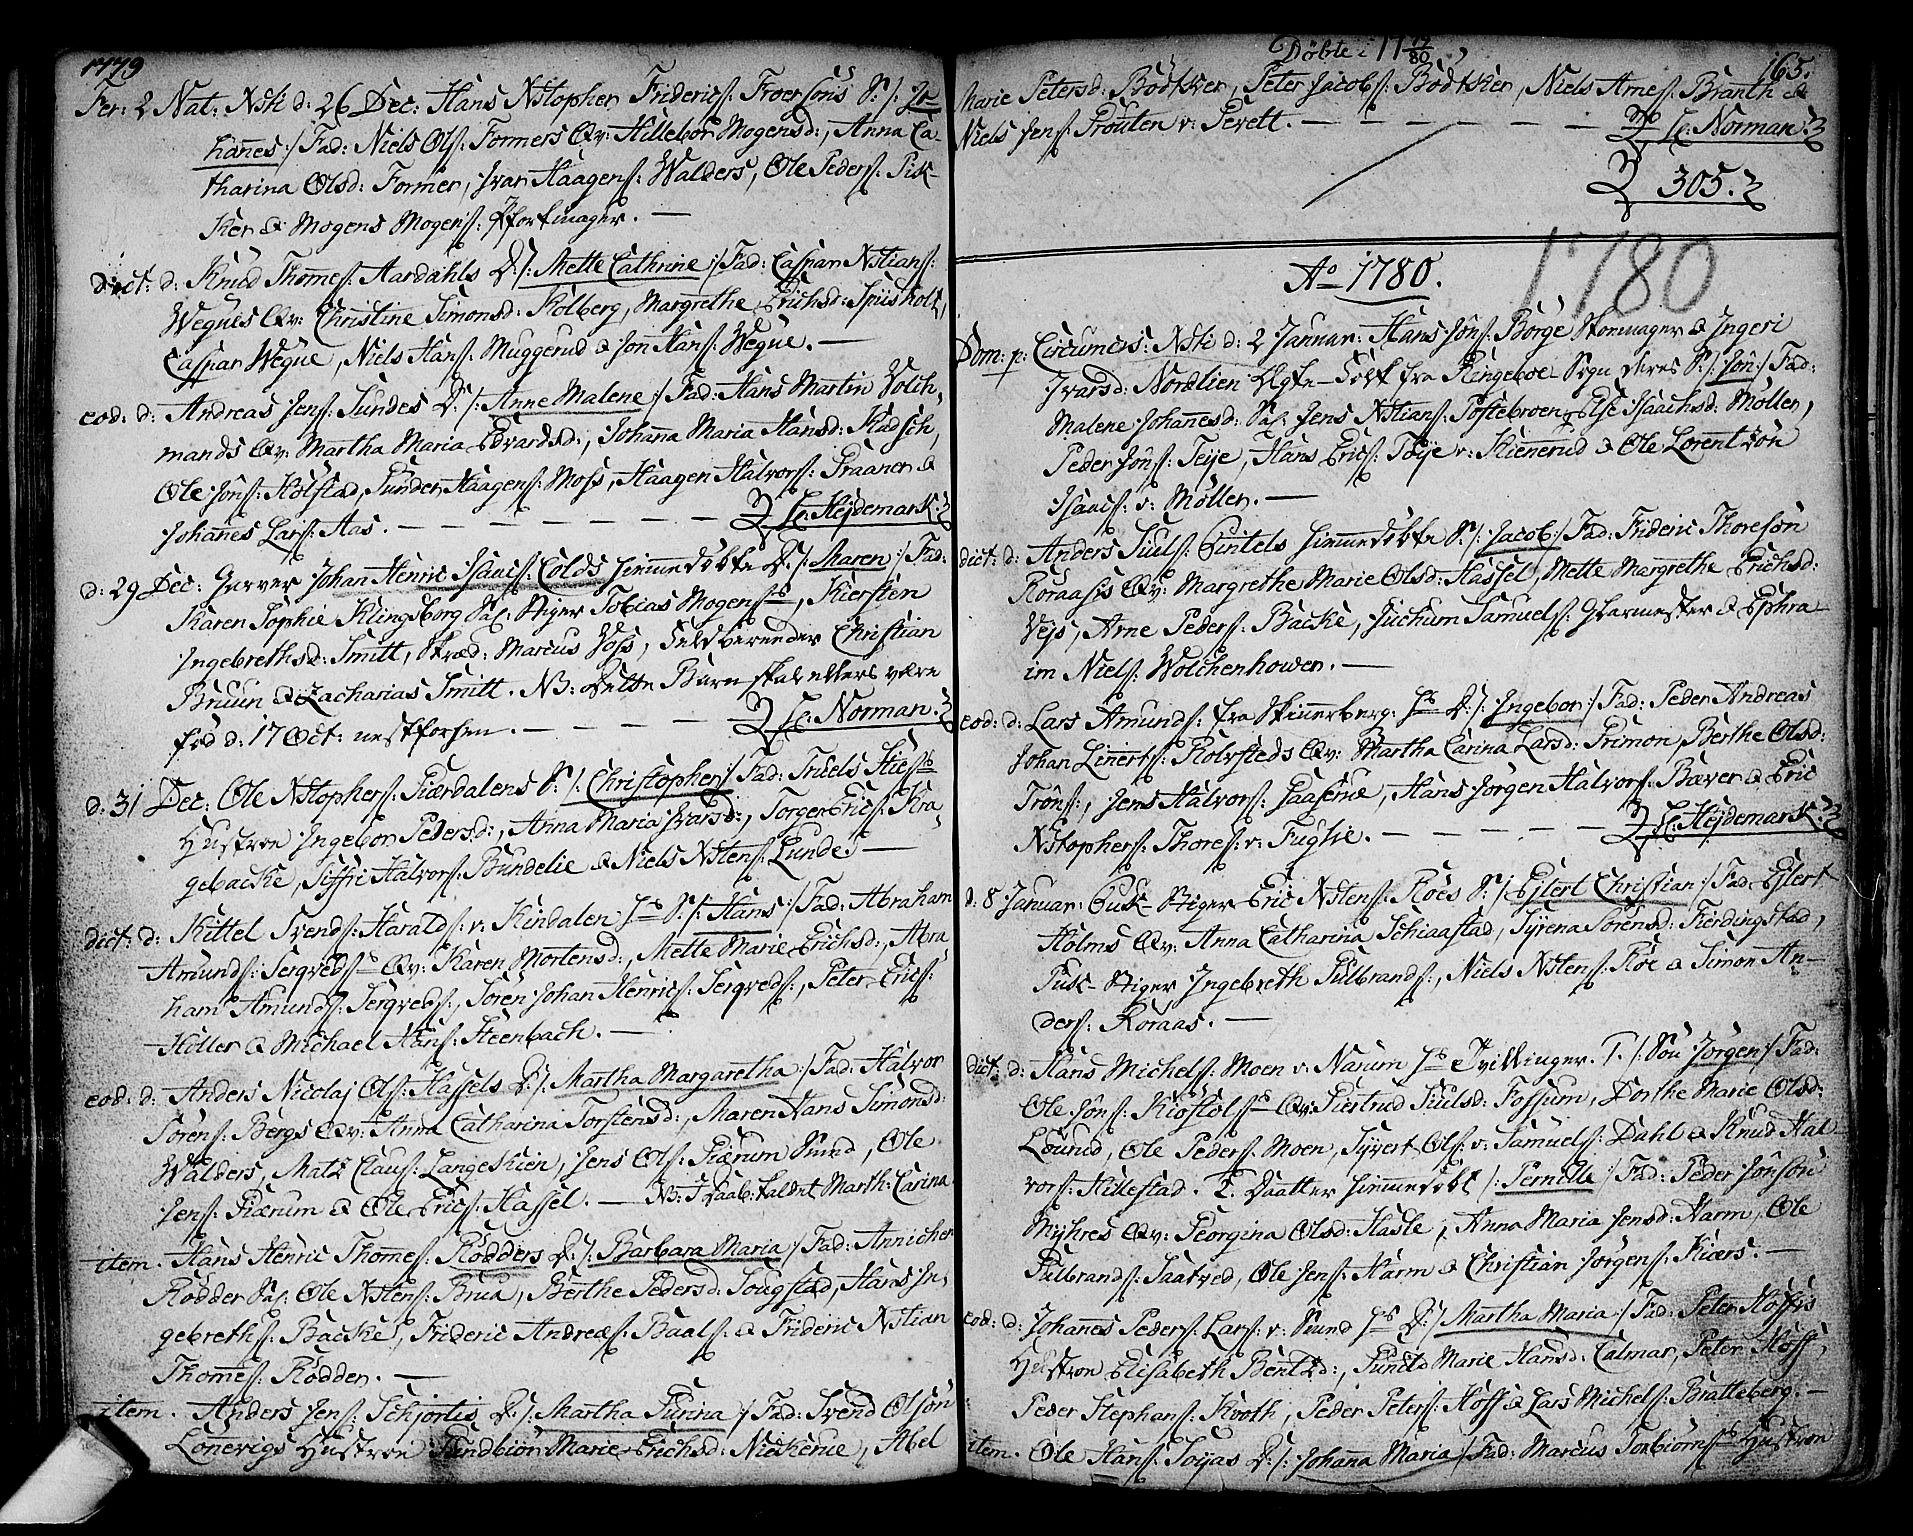 1779
Fer: 2 Nat: Xsti d: 26 Dec: Hans Xstopher Friderics: Froersöns S: /: Jo-
hañes :/ Fad: Niels Ols: Formers Qv: Hillebor Mogensd:, Anna Ca-
tharina Olsd: Former, Ivar Haagens: Walders, Ole Peders: Pisk-
ker & Mogens Mogens:
dict: d: Knud Thomes: Aardahls D: /: Mette Cathrine :/ Fad: Caspar Xstians:
Wegues Qv: Christine Simonsd: Kolberg, Margrethe Erichsd: Spüsholt,
Caspar Wegue, Niels Hans: Muggerud & Jon Hans: Wegue. —
eod: d: Andreas Jens: Sundes D: /: Anne Malene :/ Fad: Hans Martin Volch-
mands Qv: Martha Maria Edvardsd:, Johanna Maria Hansd: Kladsch,
Ole Jöns: Kolstad, Gunder Haagens: Moss, Haagen Halvors: Praaner &
Johañes Lars: Aas. — — — — — — — — H: Hejdemark.
d: 29 Dec: Garver Johan Henric Isaacs: Colds hiemmedöbte D: /: Maren :/ Fad:
Karen Sophie Klingsborg Sal: Stiger Tobias Mogens:, Kiersten
Ingebrethsd: Smitt, Skræd: Marcus Voss, Christian
Bruun & Zacharias Smitt. NB: dette Barn skal ellers være
fød d: 17 Oct: nestforhen. — — — — — H: Norman.
d: 31 Dec: Ole Xstophers: Giærdalens S: /: Christopher :/ Fad: Truels
Hustroe Ingebor Pedersd:, Anna Maria Ivarsd:, Torger Erics: Kra-
gebacke, Siffri Halvors: Bundelie & Niels Xstens: Lunde. —
dict: d: Kittel Svends: Haralds: v: Kindalen S: /: Hans :/ Fad: Abraham
Amunds: Qv: Karen Mortensd:, Mette Marie Erichsd:, Abra-
ham Amunds: Sergveds:, Sören Johan Henrics: Sergveds:, Peter Erics:
Holler & Michael Hans: Steenbach. —
eod: d: Anders Nicolaj Ols: Hassels D: /: Martha Margaretha :/ Fad: Halvor
Sörens: Bergs Qv: Anna Catharina Torstensd:, Maren Hans Simonsd:
Walders, Mats Claus: Langeskien, Jens Ols: Giærum Sund, Ole
Jens: Giærum & Ole Erics: Hassel. — NB: I Daab: kaldet Marth: Carina
item. Hans Henric Thomes: Rödders D: /: Barbara Maria :/ Fad: Annicher
Rödder Sal: Ole Xstens: Brua, Berthe Pedersd: Sougstad, Hans In-
gebreths: Backe, Frideric Andreæs: Baals: & Frideric Xstian
Thomes: Rödder. —
item. Anders Jens: Schjortis D: /: Martha Gurina :/ Fad: Svend Olsön
Lonevigs Hustroe Gundbiör Marie Erichsd: Nickerue, Abel
Döbte i 17 79/80 165.
Marie Petersd: Bödtker, Peter Jacobs: Bödtker, Niels Arnes: Branth &
Niels Jens: Prouten v: Perett. — — — — — — H: Norman.
305.
Ao 1780. 1780
Dom: p: Circumcis: Xsti d: 2 Januar: Hans Jöns: Börge Skomager & Ingeri
Ivarsd: Nordlien Ægte-Folk fra Ringeboe Sogn deres S: /: Jon :/ Fad:
Malene Johañesd: Sal: Jens Xstians: Postebroen, Else Isaachsd: Möller,
Peder Jöns: Teije, Hans Erics: Töije v: Kienerud & Ole Lorentzön
Isaacs: v: Möller. —
dict: d: Anders Juels: Qvintels hiemmedöbte S: /: Jacob :/ Fad: Frideric Thoresön
Koraasis Qv: Margrethe Marie Olsd: Hassel, Mette Margrethe Erichsd:
Vejs, Arne Peders: Backe, Juchum Samuels: Glarmester & Ephra-
im Niels: Wolchenhower. —
eod: d: Lars Amunds: fra Skinnerberg: D: /: Ingebor :/ Fad: Peder Andreas
Johan Linerts: Rolvsteds Qv: Martha Carina Larsd: Primon, Berthe Olsd:
Tröns:, Jens Halvors: Paaserue, Hans Jörgen Halvors: Bæver & Eric
Xstophers: Thores: v: Fuglie. — — — — — H: Hejdemark.
d: 8 Januar: Puk-Stiger Eric Xstens: Roes S: /: Ejlert Christian :/ Fad: Ejlert
Holms Qv: Anna Catharina Schiaastad, Syrena Sörensd: Fierdingstad,
Puk-Stiger Ingebreth Gulbrands:, Niels Xstens: Roe & Simon An-
ders: Koraas. —
dict: d: Hans Michels: Moen v: Narum Tvillinger. T. /: Sön Jörgen :/ Fad:
Ole Jöns: Qv: Giertrud Juulsd: Fossum, Dorthe Marie Olsd:
Lóurud, Ole Peders: Moen, Syvert Ols: v: Samuels: Dahl & Knud Hal-
vors: Hillestad. T. Daatter hiemmedöbt /: Pernille :/ Fad: Peder Jönsön
Myhres Qv: Georgina Olsd: Hasle, Anna Maria Jensd: Harm, Ole
Gulbrands: Saatved, Ole Jens: Harm & Christian Jörgens: Kiærs. —
eod: d: Johañes Peders: Lars: v: Sund D: /: Martha Maria :/ Fad: Peter Hoffs
Hustroe Elisabeth Bentzd:, Gunild Marie Hansd: Calmar, Peter Hoff,
Peder Stephans: Kooth, Peder Peters: Hoff & Lars Michels: Bratteberg. —
item. Ole Hans: Toijas D: /: Johana Maria :/ Fad: Marcus Torbiörns: Hustroe